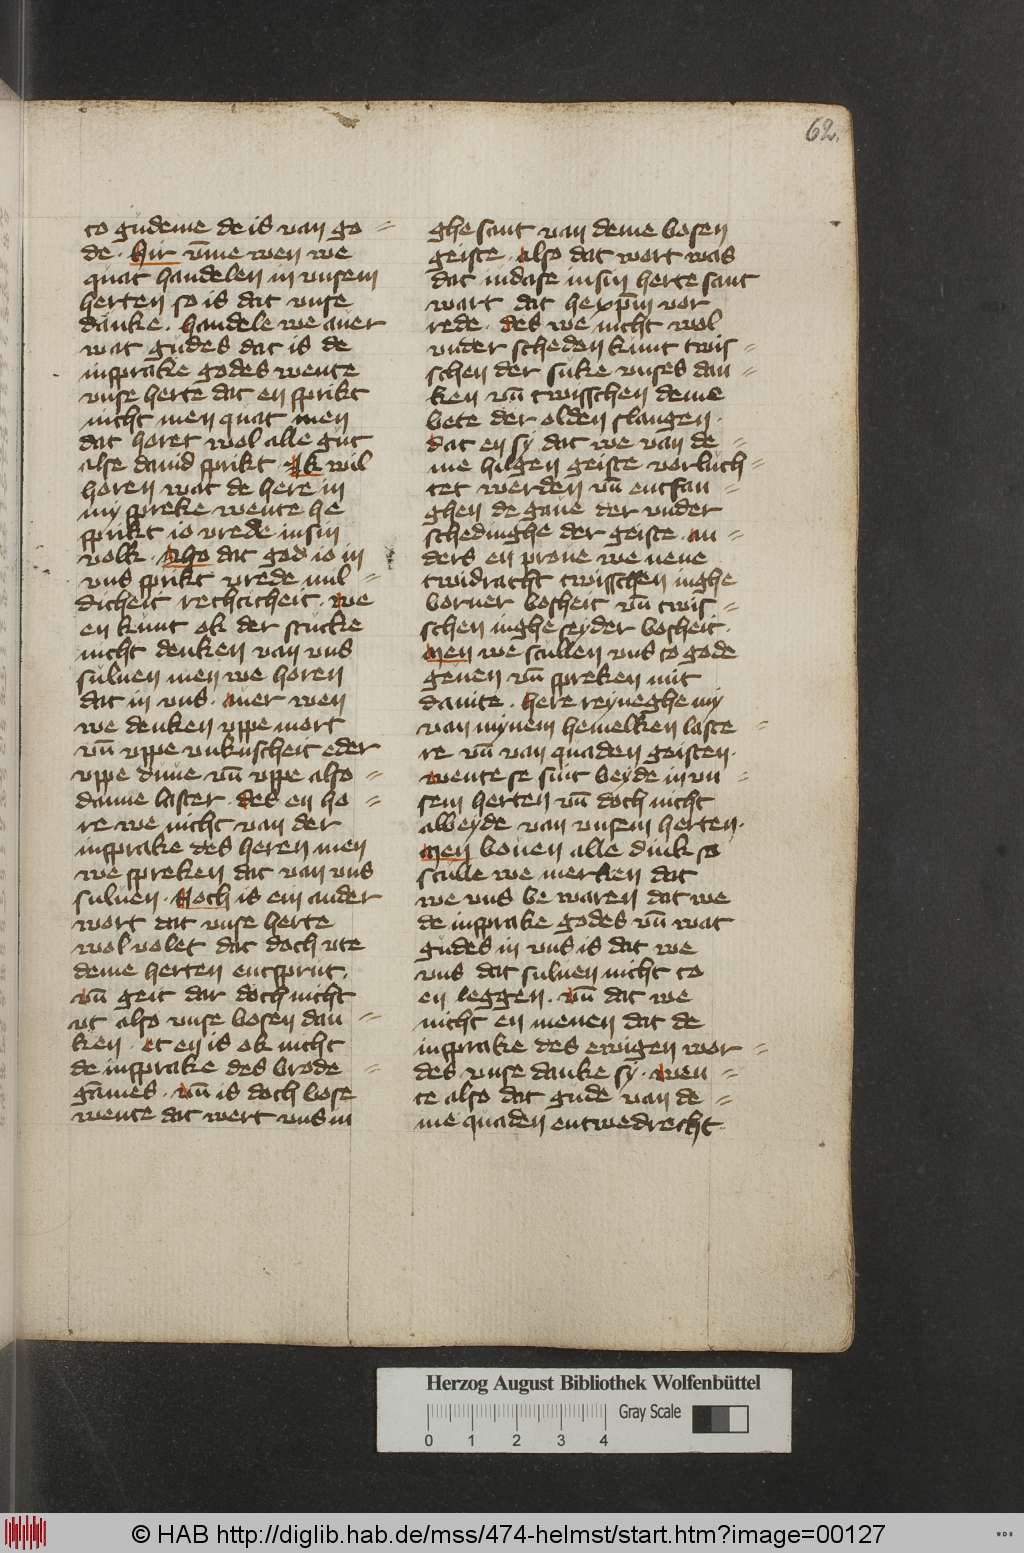 62.
to gudeme de is van go =
de · Hir vm̄me wen we
quat handelen in vnsem
herten so is dat vnse
danke · handele we auer
wat gudes dat is de
insprake godes wente
vnse herte dat en sprikt
nicht men quat men
dat horet wol alle gut
alse dauid sprikt · Ik wil
horen wat de here in
my spreke wente he
sprikt io vrede in sin
volk · Aho dat god io in
vns sprikt vrede mil =
dicheit rechticheit · we
en kunt ok der stucke
nicht denken van vns
suluen men we horen
dat in vns · auer wen
we denken vppe mort
vn̄ vppe vnkuscheit eder
vppe duue vn̄ vppe also =
danne laster · des en ho =
re we nicht van der
insprake des heren men
we spreken dat van vns
suluen · Noch is ein ander
wort dat vnse herte
wol volet dat doch vte
deme herten entsprut ·
vn̄ geit dar doch nicht
vt also vnse bosen dan =
ken · et en is ok nicht
de insprake des brode =
gāmes · vn̄ is doch bose
wente dat wert vns in
ghe sant van deme bosen
geiste · also dat wort was
dat iudase in sin herte sant
wart dat he xp̄m vor
rede · des we nicht wol
vnder scheden kunt twis =
schen der suke vnses dan =
ken vn̄ twisschen deme
bete der olden slangen ·
dat en sy dat we van de =
me hilgen geiste vorluch =
tet werden vn̄ entfan =
ghen de gaue der vnder
schedinghe der geiste · an =
ders en proue we neue
twidracht twisschen inghe
borner bosheit vn̄ twis =
schen inghe seyder bosheit ·
Men we scullen vns to gode
geuen vn̄ spreken mit
dauite · here reyneghe my
van mynem hemelken laste =
re vn̄ van quaden geisten ·
wente se sint beyde in vn =
sem herten vn̄ doch nicht
albeyde van vnsem herten ·
Men bouen alle dink so
sculle we merken dat
we vns be waren dat we
de insprake godes vn̄ wat
gudes in vns is dat we
vns dat suluen nicht to
en leggen · vn̄ dat we
nicht en menen dat de
insprake des ewigen wor =
des vnse danke sy · wen =
te also dat gude van de =
me quaden entwedrecht
Herzog August Bibliothek Wolfenbüttel
Gray Scale
0 1 2 3 4
© HAB http://diglib.hab.de/mss/474-helmst/start.htm?image=00127